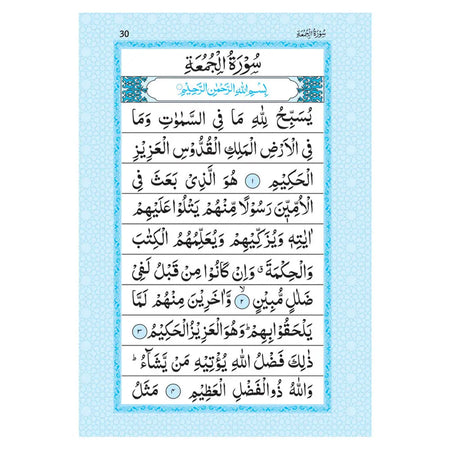 30 سُوْرَةُ الْجُمُعَةِ
سُوْرَةُ الْجُمُعَةِ
بِسْمِ اللهِ الرَّحْمٰنِ الرَّحِيْمِ
يُسَبِّحُ لِلّٰهِ مَا فِی السَّمٰوٰتِ وَمَا
فِی الْاَرْضِ الْمَلِكِ الْقُدُّوْسِ الْعَزِيْزِ
الْحَكِيْمِ ۱ هُوَ الَّذِیْ بَعَثَ فِی
الْاُمِّيّٖنَ رَسُوْلًا مِّنْهُمْ يَتْلُوْا عَلَيْهِمْ
اٰيٰتِهٖ وَيُزَكِّيْهِمْ وَيُعَلِّمُهُمُ الْكِتٰبَ
وَالْحِكْمَةَ ۗ وَاِنْ كَانُوْا مِنْ قَبْلُ لَفِیْ
ضَلٰلٍ مُّبِيْنٍ ۲ۙ وَّاٰخَرِيْنَ مِنْهُمْ لَمَّا
يَلْحَقُوْا بِهِمْ ؕ وَهُوَ الْعَزِيْزُ الْحَكِيْمُ ۳
ذٰلِكَ فَضْلُ اللهِ يُؤْتِيْهِ مَنْ يَّشَآءُ ؕ
وَاللهُ ذُو الْفَضْلِ الْعَظِيْمِ ۴ مَثَلُ